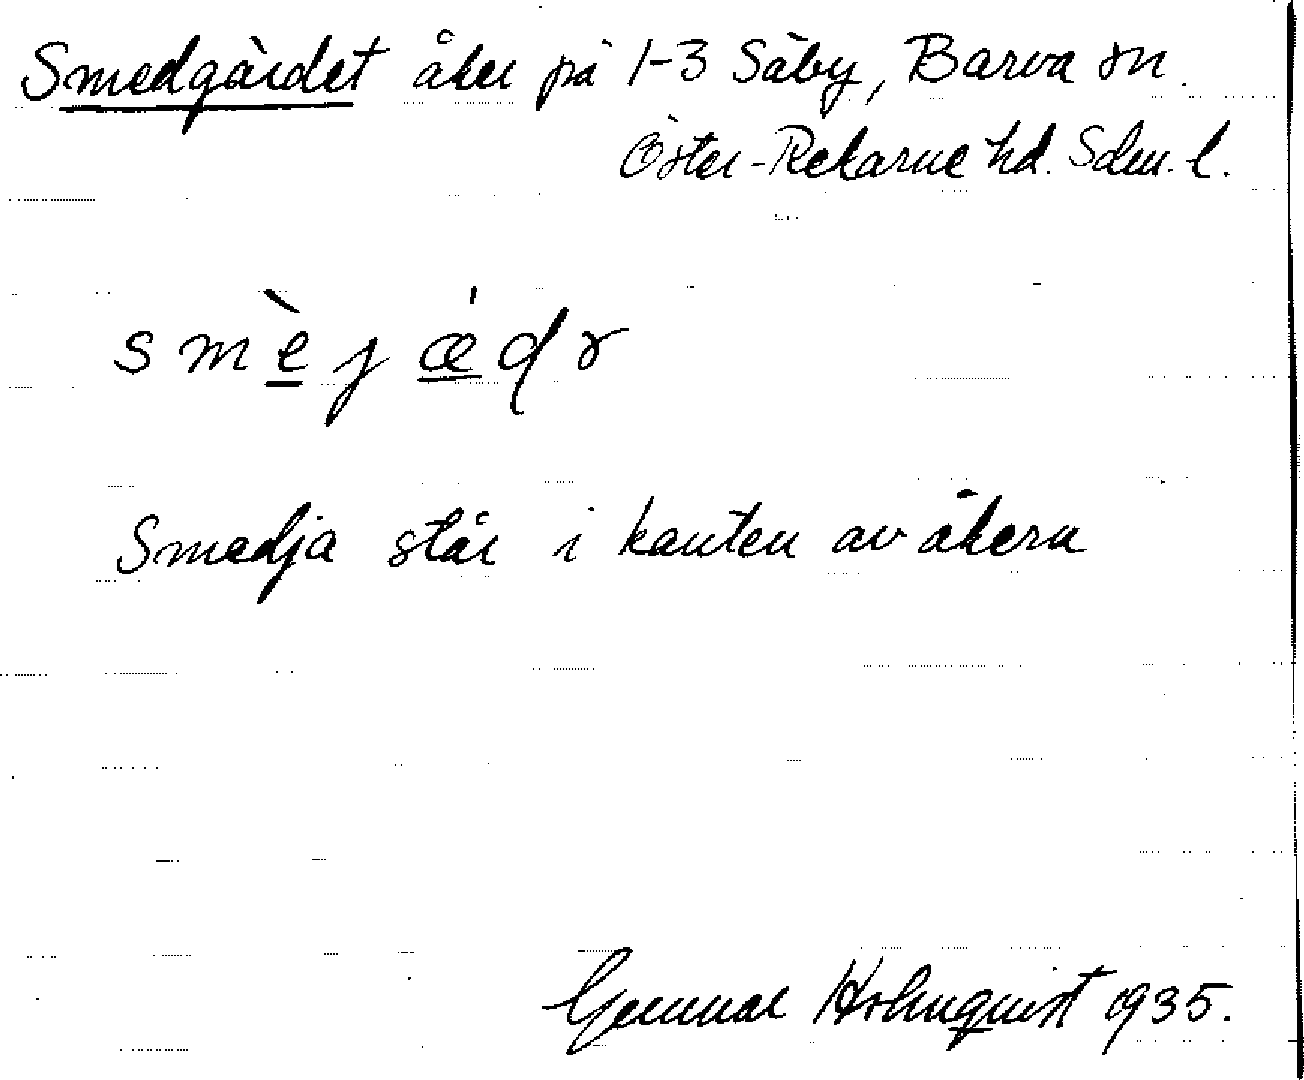 Smedgärdet åker på 1-3 Säby, Barva sn.
Öster-Rekarne hd. Sdm. l.
smèjǽdr
Smedja står i kanten av åkern
Gunnar Holmquist 1935.